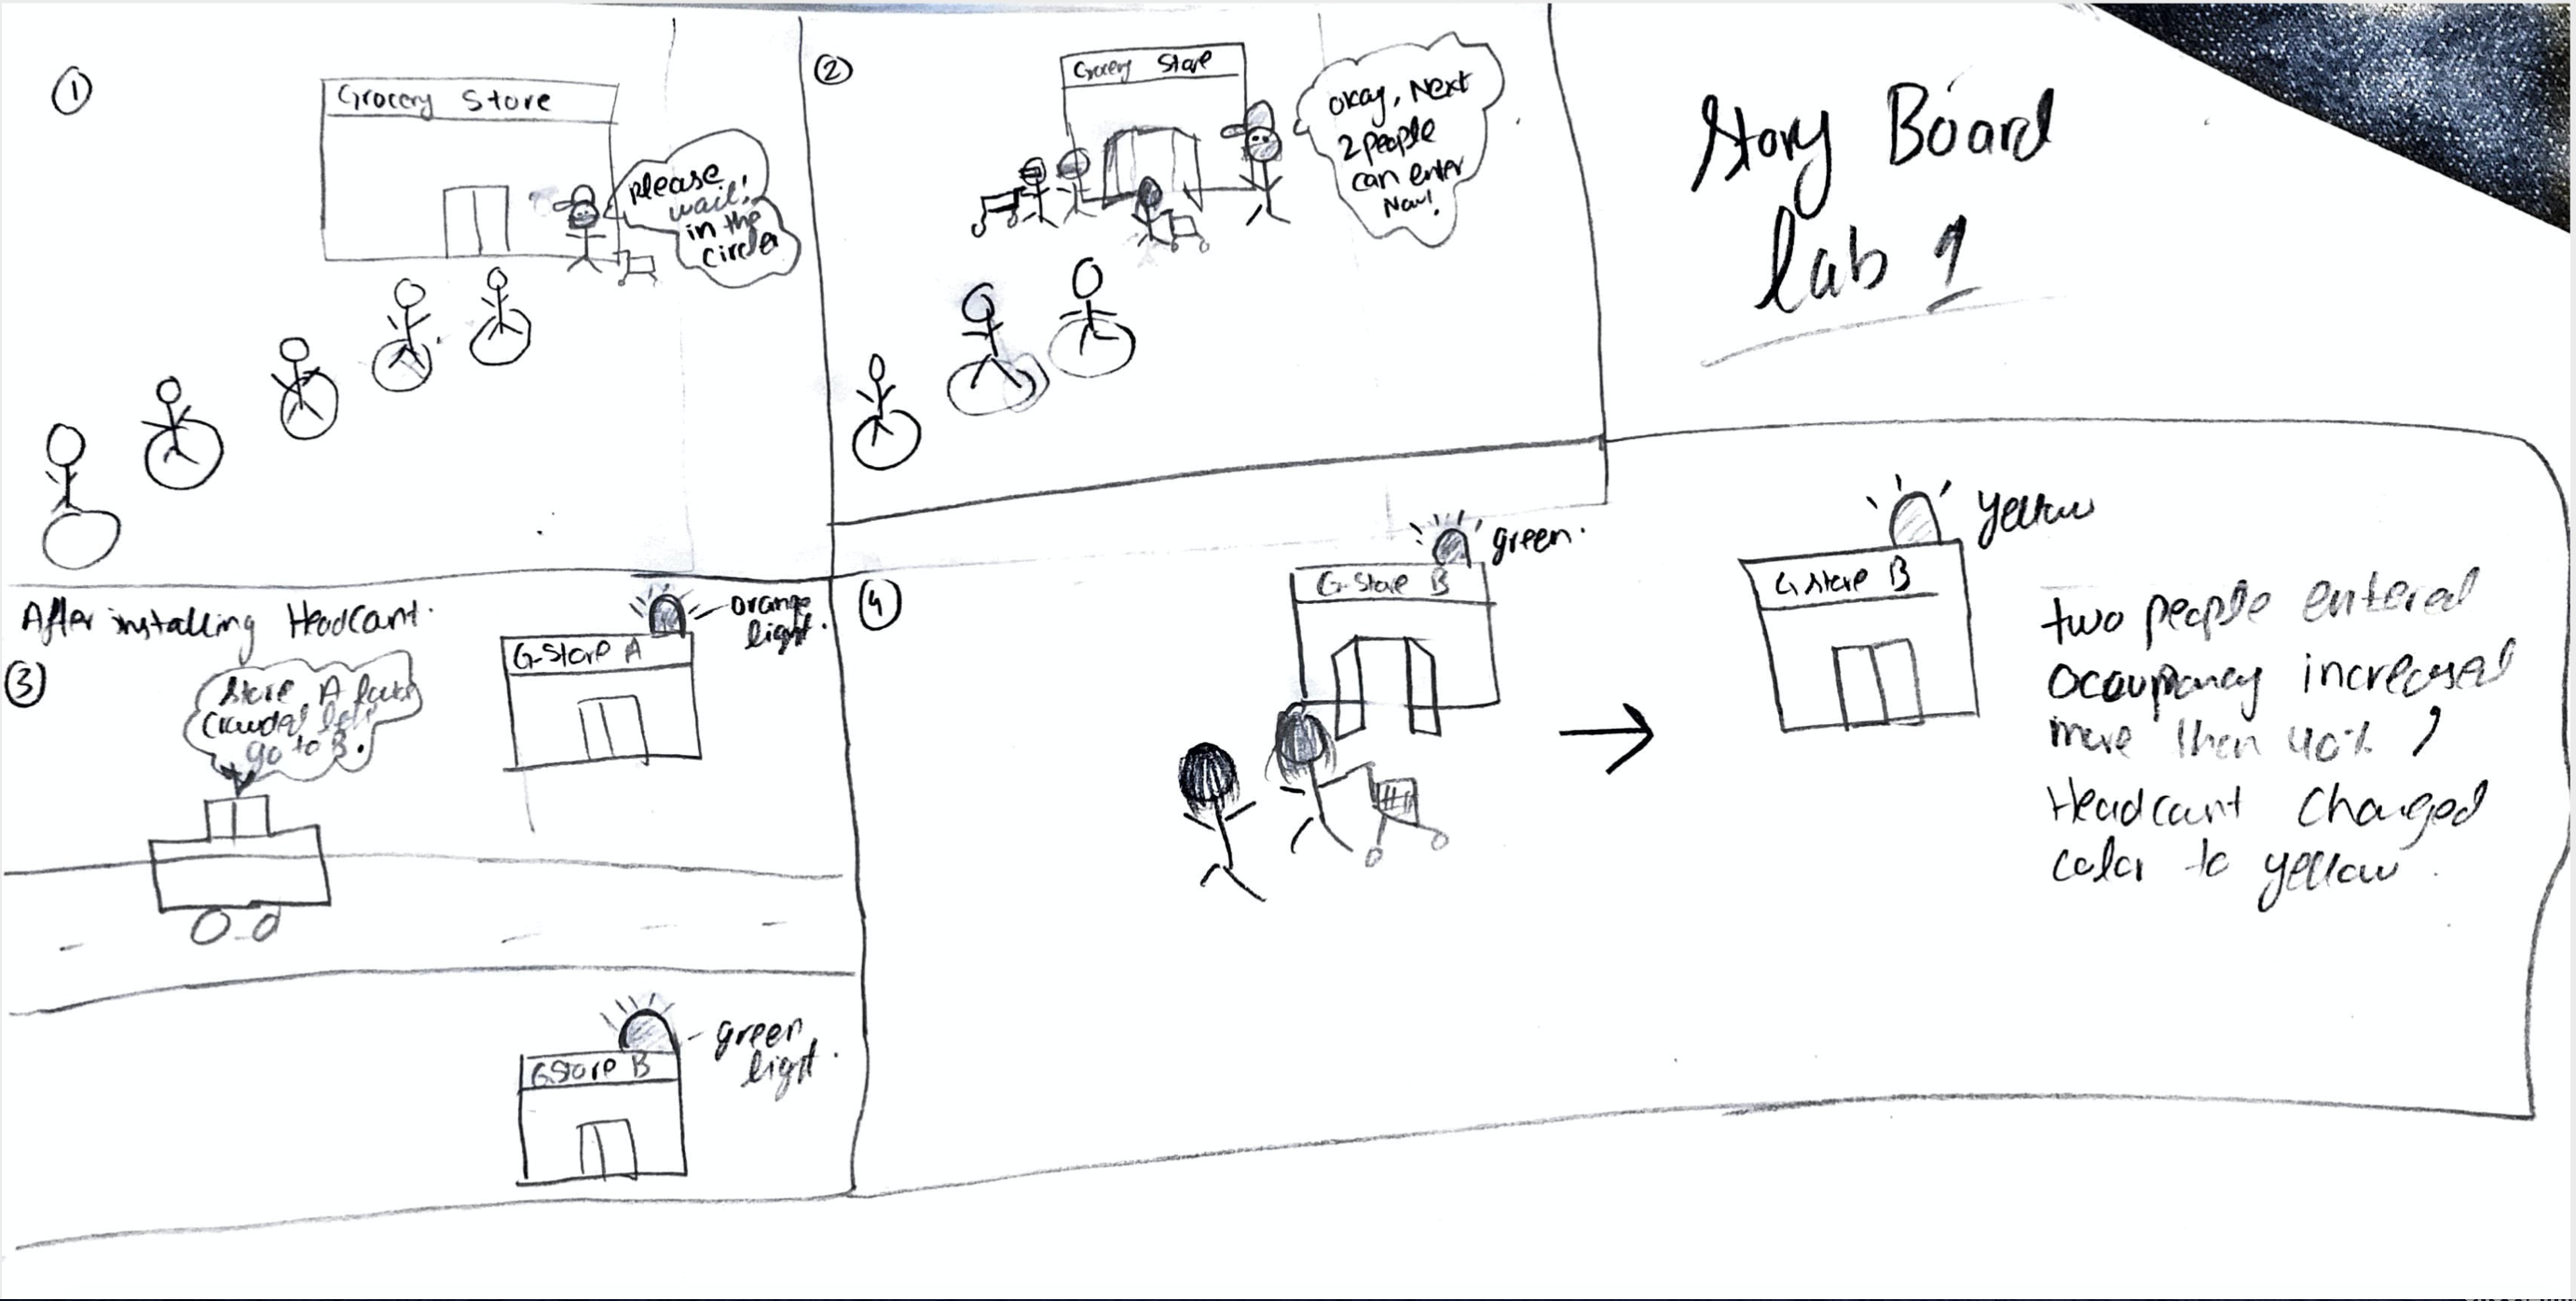 Story Board
lab 1
①
Grocery Store
please
wait,
in the
circle
②
Grocery Store
okay, Next
2 people
can enter
Now!
After installing Headcount.
③
Store A looks
crowded lets
go to B.
G-Store A
orange
light.
G.Store B
green
light.
④
G-Store B
green.
G store B
yellow
two people entered
occupancy increased
more then 40%,
Headcount changed
color to yellow.